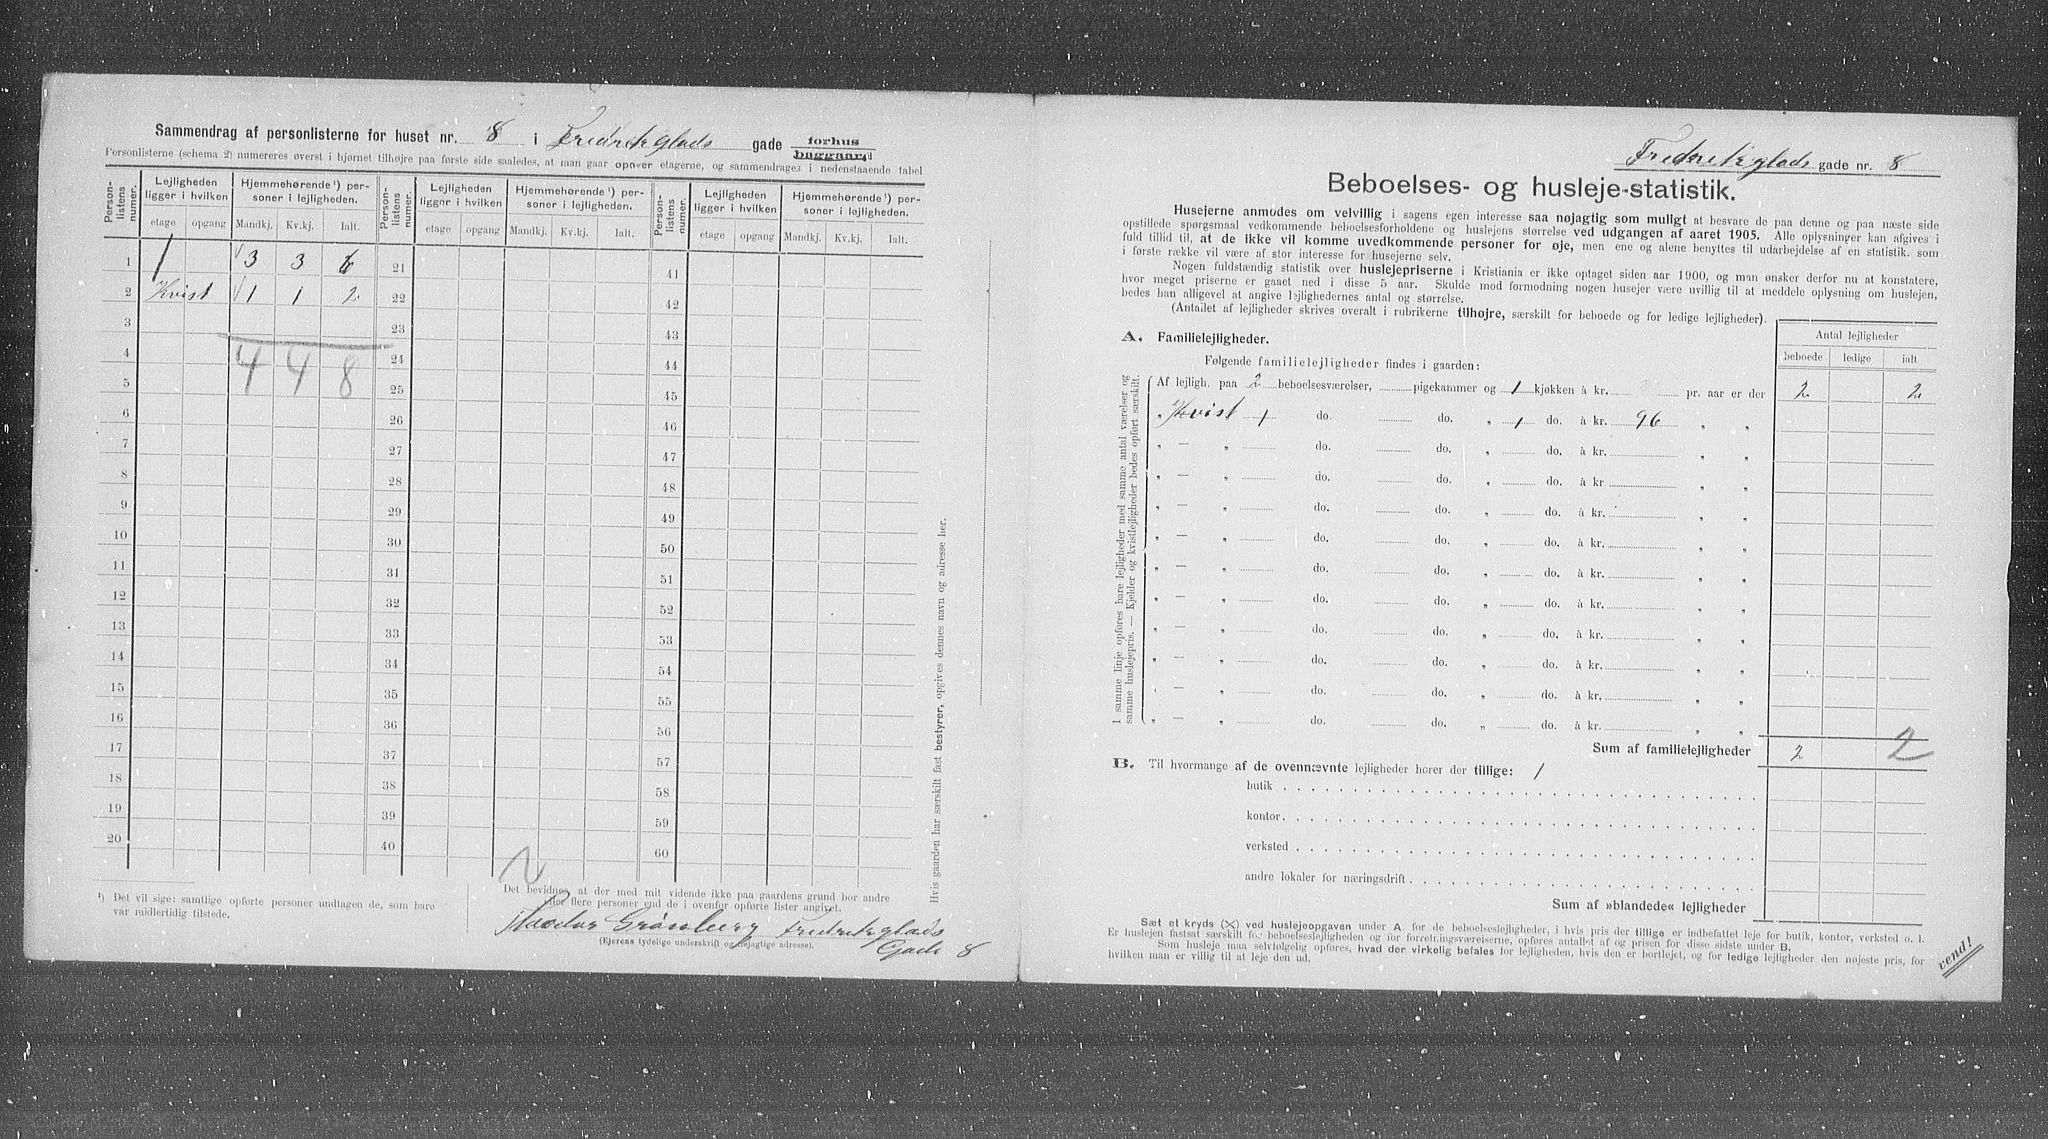 Sammendrag af personlisterne for huset nr. 8 i Fredriksglads gade forhus
baggaard
Personlisterne (schema 2) numereres øverst i hjørnet tilhøjre paa første side saaledes, at man gaar opover etagerne, og sammendrages i nedenstaaende tabel
Person-listens numer. Lejligheden ligger i hvilken Hjemmehørende ¹) personer i lejligheden. Person-listens numer. Lejligheden ligger i hvilken Hjemmehørende ¹) personer i lejligheden. Person-listens numer. Lejligheden ligger i hvilken Hjemmehørende ¹) personer i lejligheden.
etage opgang Mandkj. Kv.kj. Ialt. etage opgang Mandkj. Kv.kj. Ialt. etage opgang Mandkj. Kv.kj. Ialt.
1 1 3 3 6 21 41
2 Kvist 1 1 2 22 42
3 23 43
4 4 4 8 24 44
5 25 45
6 26 46
7 27 47
8 28 48
9 29 49
10 30 50
11 31 51
12 32 52
13 33 53
14 34 54
15 35 55
16 36 56
17 37 57
18 38 58
19 39 59
20 40 60
Hvis gaarden har særskilt fast bestyrer, opgives dennes navn og adresse her.
¹) Det vil sige: samtlige opførte personer undtagen de, som bare
var midlertidig tilstede.
Det bevidnes, at der med mit vidende ikke paa gaardens grund bor andre
eller flere personer end de i ovenfor opførte lister angivet.
Grønberg Fredriksglads
Gade 8
(Ejerens tydelige underskrift og nøjagtige adresse).
Fredriksglads gade nr. 8
Beboelses- og husleje-statistik.
Husejerne anmodes om velvillig i sagens egen interesse saa nøjagtig som muligt at besvare de paa denne og paa næste side
opstillede spørgsmaal vedkommende beboelsesforholdene og huslejens størrelse ved udgangen af aaret 1905. Alle oplysninger kan afgives i
fuld tillid til, at de ikke vil komme uvedkommende personer for øje, men ene og alene benyttes til udarbejdelse af en statistik, som
i første række vil være af stor interesse for husejerne selv.
Nogen fuldstændig statistik over huslejepriserne i Kristiania er ikke optaget siden aar 1900, og man ønsker derfor nu at konstatere,
hvor meget priserne er gaaet ned i disse 5 aar. Skulde mod formodning nogen husejer være uvillig til at meddele oplysning om huslejen,
bedes han alligevel at angive lejlighedernes antal og størrelse.
(Antallet af lejligheder skrives overalt i rubrikerne tilhøjre, særskilt for beboede og for ledige lejligheder).
A. Familielejligheder.
Antal lejligheder
beboede ledige ialt
Følgende familielejligheder findes i gaarden:
I samme linje opføres bare lejligheder med samme antal værelser og
samme huslejepris. — Kjelder og kvistlejligheder bedes opført særskilt.
Af lejligh. paa 2 beboelsesværelser, pigekammer og 1 kjøkken à kr. pr. aar er der 2 2
„ Kvist 1 do. do. „ 1 do. à kr. 96 „ „
„ — „ do. do. „ do. à kr. „ „
„ — „ do. do. „ do. à kr. „ „
„ — „ do. do. „ do. à kr. „ „
„ — „ do. do. „ do. à kr. „ „
„ — „ do. do. „ do. à kr. „ „
„ — „ do. do. „ do. à kr. „ „
„ — „ do. do. „ do. à kr. „ „
„ — „ do. do. „ do. à kr. „ „
„ — „ do. do. „ do. à kr. „ „
„ — „ do. do. „ do. à kr. „ „
Sum af familielejligheder 2 2
B. Til hvormange af de ovennævnte lejligheder hører der tillige: 1
butik
kontor
verksted
andre lokaler for næringsdrift
Sum af »blandede« lejligheder
Sæt et kryds (X) ved huslejeopgaven under A. for de beboelseslejligheder, i hvis pris der tillige er indbefattet leje for butik, kontor, verksted o. l.
Er huslejen fastsat særskilt for beboelseslejligheden og for forretningsværelserne, opføres antallet af og prisen for disse sidste under B.
Som husleje maa selvfølgelig opføres, hvad der virkelig betales for lejligheden, hvis den er bortlejet, og for ledige lejligheder den nøjeste pris, for
hvilken man er villig til at leje den ud.
vend!